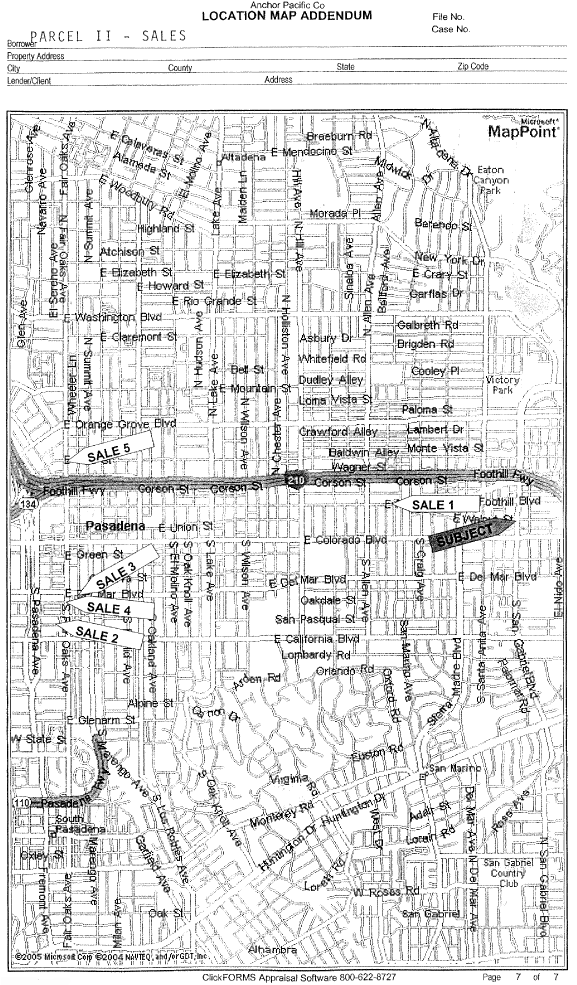 Anchor Pacific Co
LOCATION MAP ADDENDUM
File No.
Case No.
PARCEL II - SALES
Borrower
Property Address
City County State Zip Code
Lender/Client Address
Microsoft®
MapPoint®
Braeburn Rd
E Calaveras St
Altadena
E Mendocino St
N Altadena Dr
Alameda St
Midwick Dr
Eaton
Canyon
Park
Glenrose Ave
Fair Oaks Ave
El Molino Ave
Navarro Ave
E Woodbury Rd
Lake Ave
Maiden Ln
Hill Ave
Allen Ave
Morada Pl
Highland St
N Summit Ave
N Hill Ave
Atchison St
New York Dr
E Elizabeth St
E Elizabeth St
E Crary St
E Howard St
Garfias Dr
El Sereno Ave
N Fair Oaks Ave
Sinaloa Ave
E Rio Grande St
N Allen Ave
Glen Ave
E Washington Blvd
Galbreth Rd
E Claremont St
Asbury Dr
Brigden Rd
N Hudson Ave
N Holliston Ave
Whitefield Rd
Wheeler Ln
N Summit Ave
Bell St
Dudley Alley
Cooley Pl
Victory
Park
E Mountain St
N Lake Ave
Loma Vista St
Paloma St
N Wilson Ave
N Chester Ave
E Orange Grove Blvd
Crawford Alley
Lambert Dr
SALE 5
Baldwin Alley
Monte Vista St
Wagner St
Foothill Fwy
210
Foothill Fwy
Corson St
Corson St
Corson St
Corson St
134
SALE 1
Foothill Blvd
Pasadena
E Union St
SUBJECT
E Colorado Blvd
E Green St
SALE 3
E Del Mar Blvd
E Del Mar Blvd
S Oak Knoll Ave
S El Molino Ave
S Lake Ave
S Wilson Ave
S Allen Ave
S Craig Ave
El Nido Ave
SALE 4
Oakdale St
San Pasqual St
SALE 2
E California Blvd
S Pasadena Ave
Lombardy Rd
Orlando Rd
San Marino Ave
S Santa Anita Ave
S San Gabriel Blvd
Palomar Rd
Arden Rd
Oxford Rd
Sierra Madre Blvd
Alpine St
E Glenarm St
W State St
S Marengo Ave
Euston Rd
San Marino
Virginia Rd
S Oak Knoll Ave
110
Pasadena
Monterey Rd
Huntington Dr
Huntington Dr
South
Pasadena
S Los Robles Ave
West Dr
Adair St
Lorain Rd
Del Mar Ave
Garfield Ave
Oxley St
San Gabriel
Country
Club
Fremont Ave
Marengo Ave
W Roses Rd
N Del Mar Ave
N San Gabriel Blvd
Fair Oaks Ave
Milan Ave
Oak St
San Gabriel
Alhambra
©2005 Microsoft Corp ©2004 NAVTEQ, and/or GDT, Inc.
ClickFORMS Appraisal Software 800-622-8727
Page 7 of 7